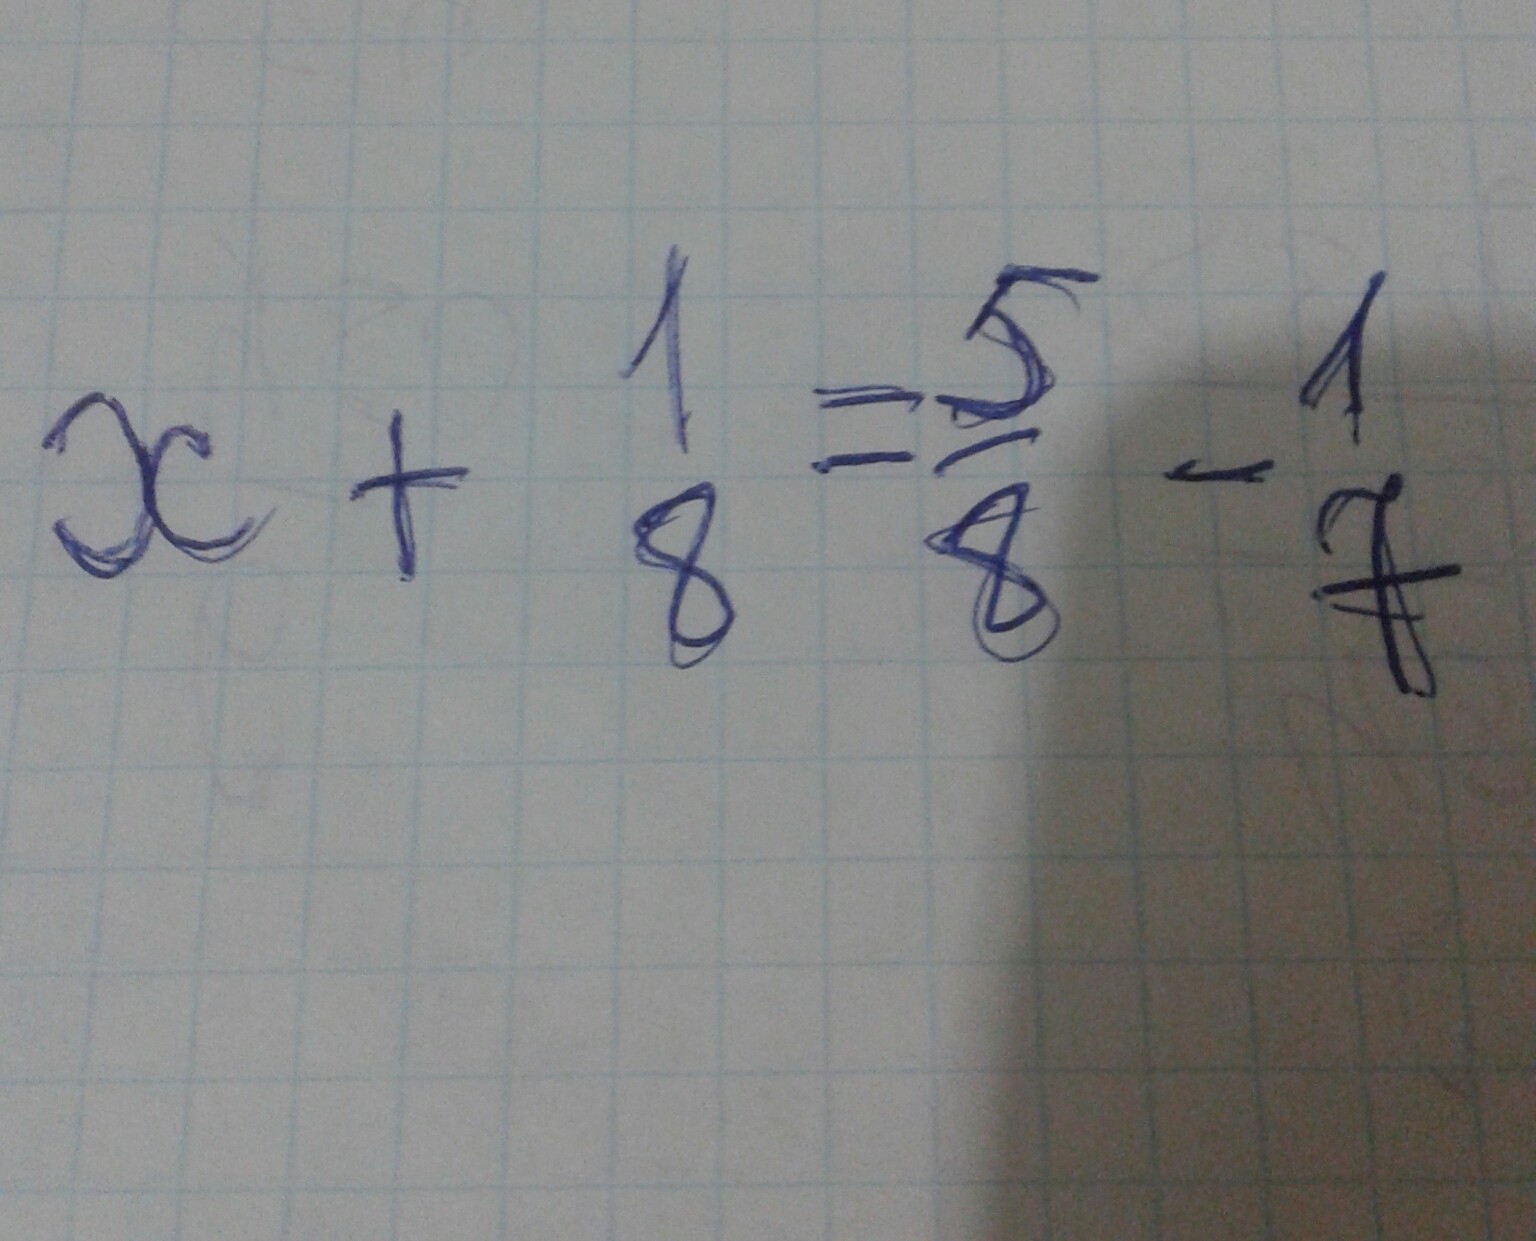 x + 1/8 = 5/8 - 1/7